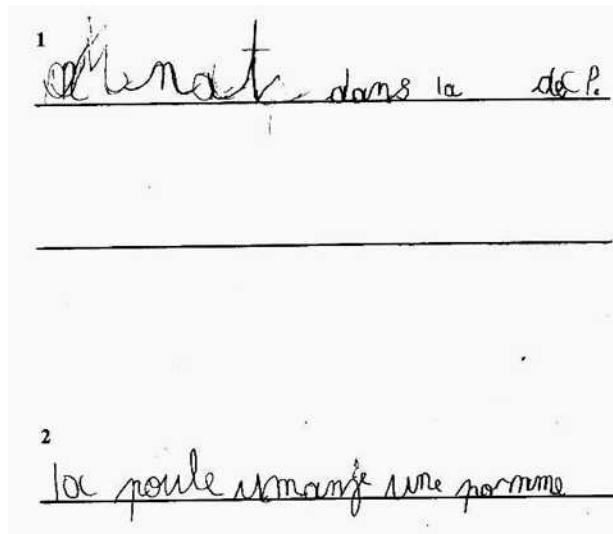 1
dans la de C P.
2
la poule manje une pomme